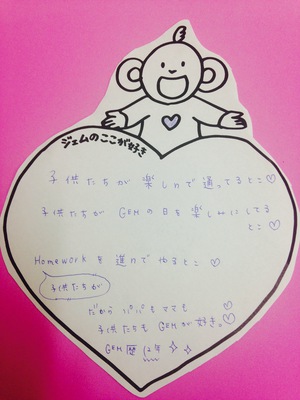 ジェムのここが好き
子供たちが 楽しんで 通ってるとこ♡
子供たちが GEMの日を 楽しみにしてる
とこ♡
Homework を 進んで やるとこ ♡
子供たちが
だから パパも ママも ♡
子供たちも GEMが 好き。♡
GEM 歴 12年